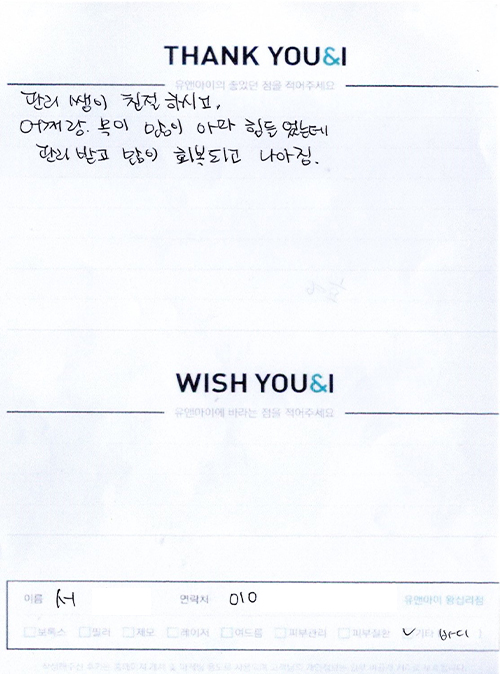 THANK YOU&I
유앤아이의 좋았던 점을 적어주세요
관리 쌤이 친절 하시고,
어깨랑. 목이 많이 아파 힘들었는데
관리 받고 많이 회복되고 나아짐.
WISH YOU&I
유앤아이에 바라는 점을 적어주세요
이름 서 연락처 010 유앤아이 왕십리점
보톡스 필러 제모 레이저 여드름 피부관리 피부질환 기타 바디 )